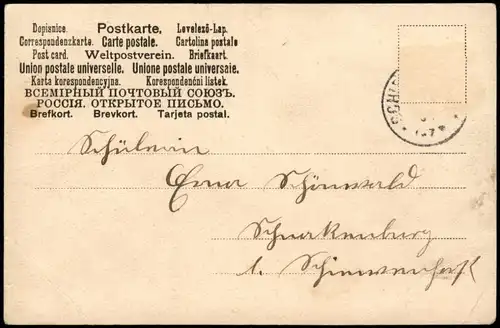 Dopisnice. Postkarte. Levelező-Lap.
Correspondenzkarte. Carte postale. Cartolina postale
Post card. Weltpostverein. Briefkaart.
Union postale universelle. Unione postale universale.
Karta korespondencyjna. Korespondenční lístek.
ВСЕМІРНЫЙ ПОЧТОВЫЙ СОЮЗЪ.
РОССІЯ. ОТКРЫТОЕ ПИСЬМО.
Brefkort. Brevkort. Tarjeta postal.
Schülerin
Erna Schönwald
Schnakenburg